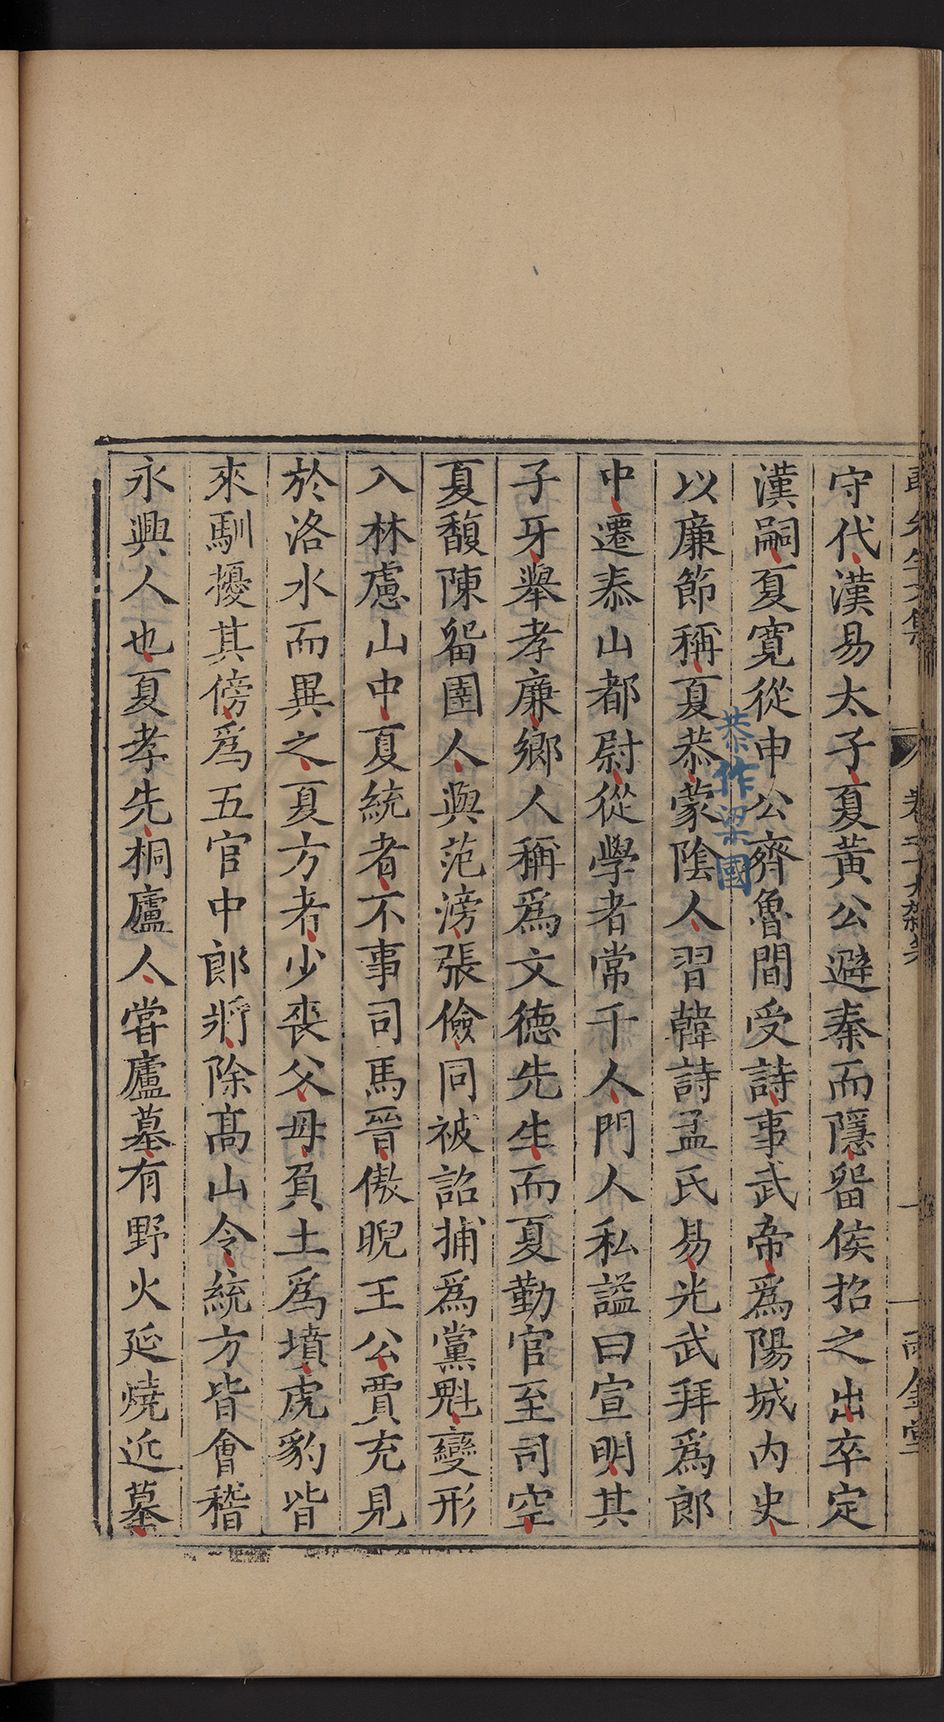 守代漢易太子夏黃公避秦而隱畱侯招之出卒定
漢嗣夏寬從申公齊魯間受詩事武帝爲陽城內史
恭作梁國
以廉節稱夏恭蒙陰人習韓詩孟氏易光武拜爲郎
中遷泰山都尉從學者常千人門人私謚曰宣明其
子牙舉孝廉鄉人稱爲文德先生而夏勤官至司空
夏馥陳畱圉人與范滂張儉同被詔捕爲黨魁變形
入林慮山中夏統者不事司馬晉傲睨王公賈充見
於洛水而異之夏方者少喪父母負土爲墳虎豹皆
來馴擾其傍爲五官中郎將除高山令統方皆會稽
永興人也夏孝先桐廬人嘗廬墓有野火延燒近墓